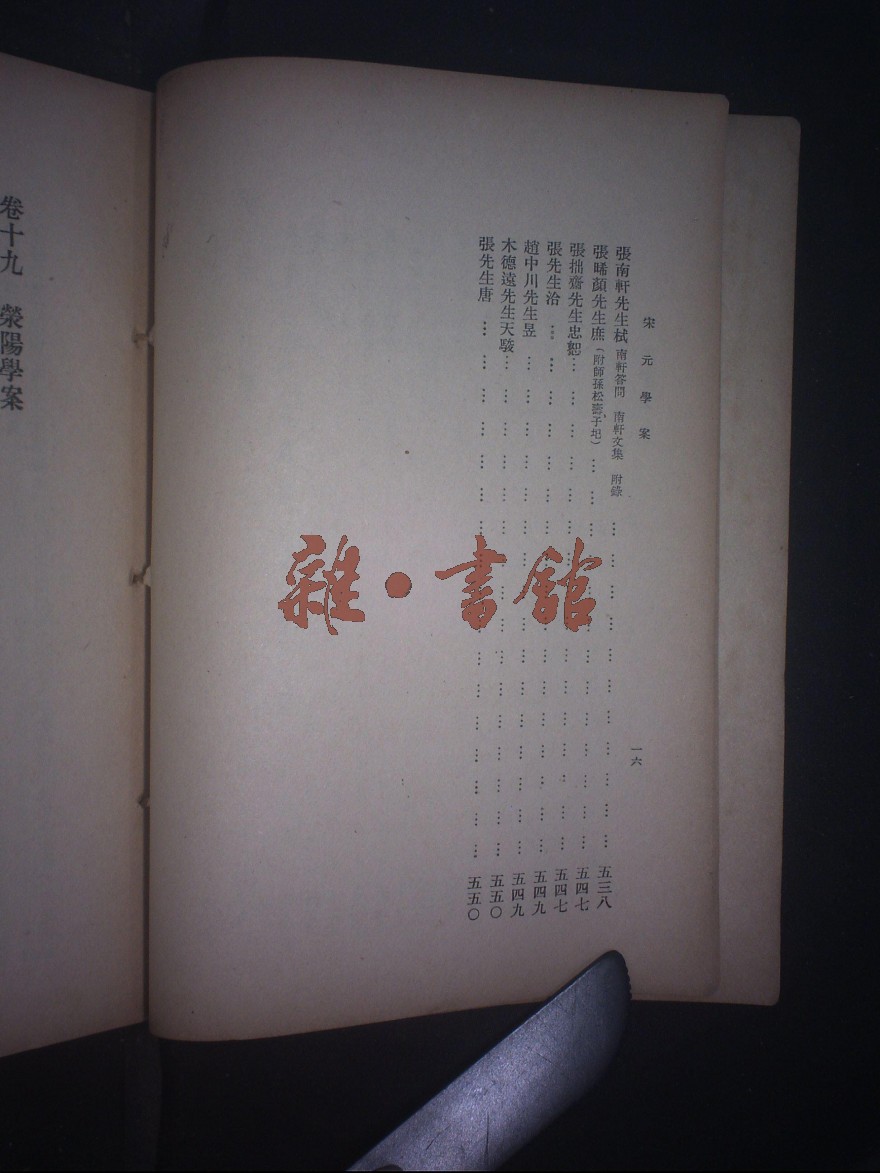 宋元學案
一六
張南軒先生栻 南軒答問 南軒文集 附錄 …… 五三八
張晞顏先生庶(附師孫松壽、子圯) …… 五四七
張拙齋先生忠恕 …… 五四七
張先生洽 …… 五四九
趙中川先生昱 …… 五四九
木德遠先生天駿 …… 五五〇
張先生唐 …… 五五〇
卷十九 滎陽學案
雜·書館